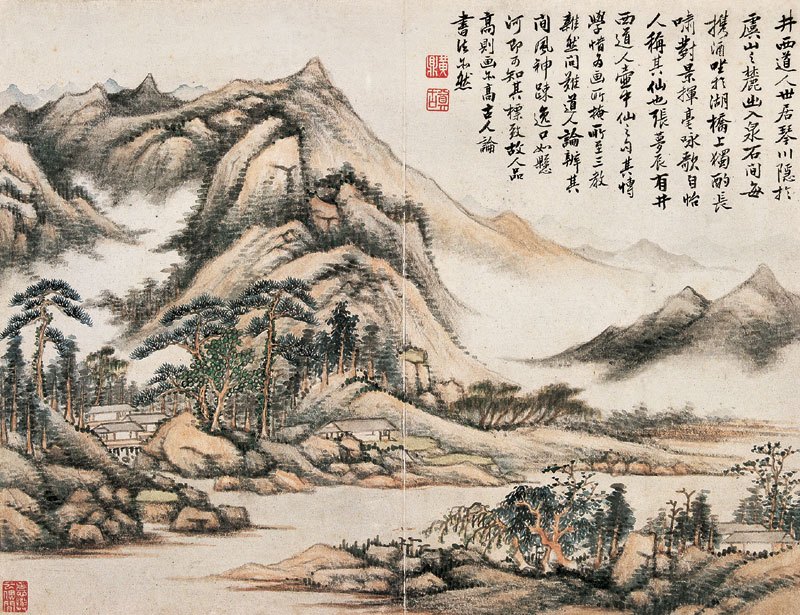 井西道人世居琴川隱於
虞山之麓出入泉石間每
攜酒坐於湖橋上獨酌長
嘯對景揮毫咏歌自怡
人稱其仙也張夢辰有井
西道人壺中仙之句其博
學惜為画所掩所至三教
雜然問難道人論辨其
間風神疎逸口如懸
河即可知其標致故人品
高則画亦高古人論
書法亦然